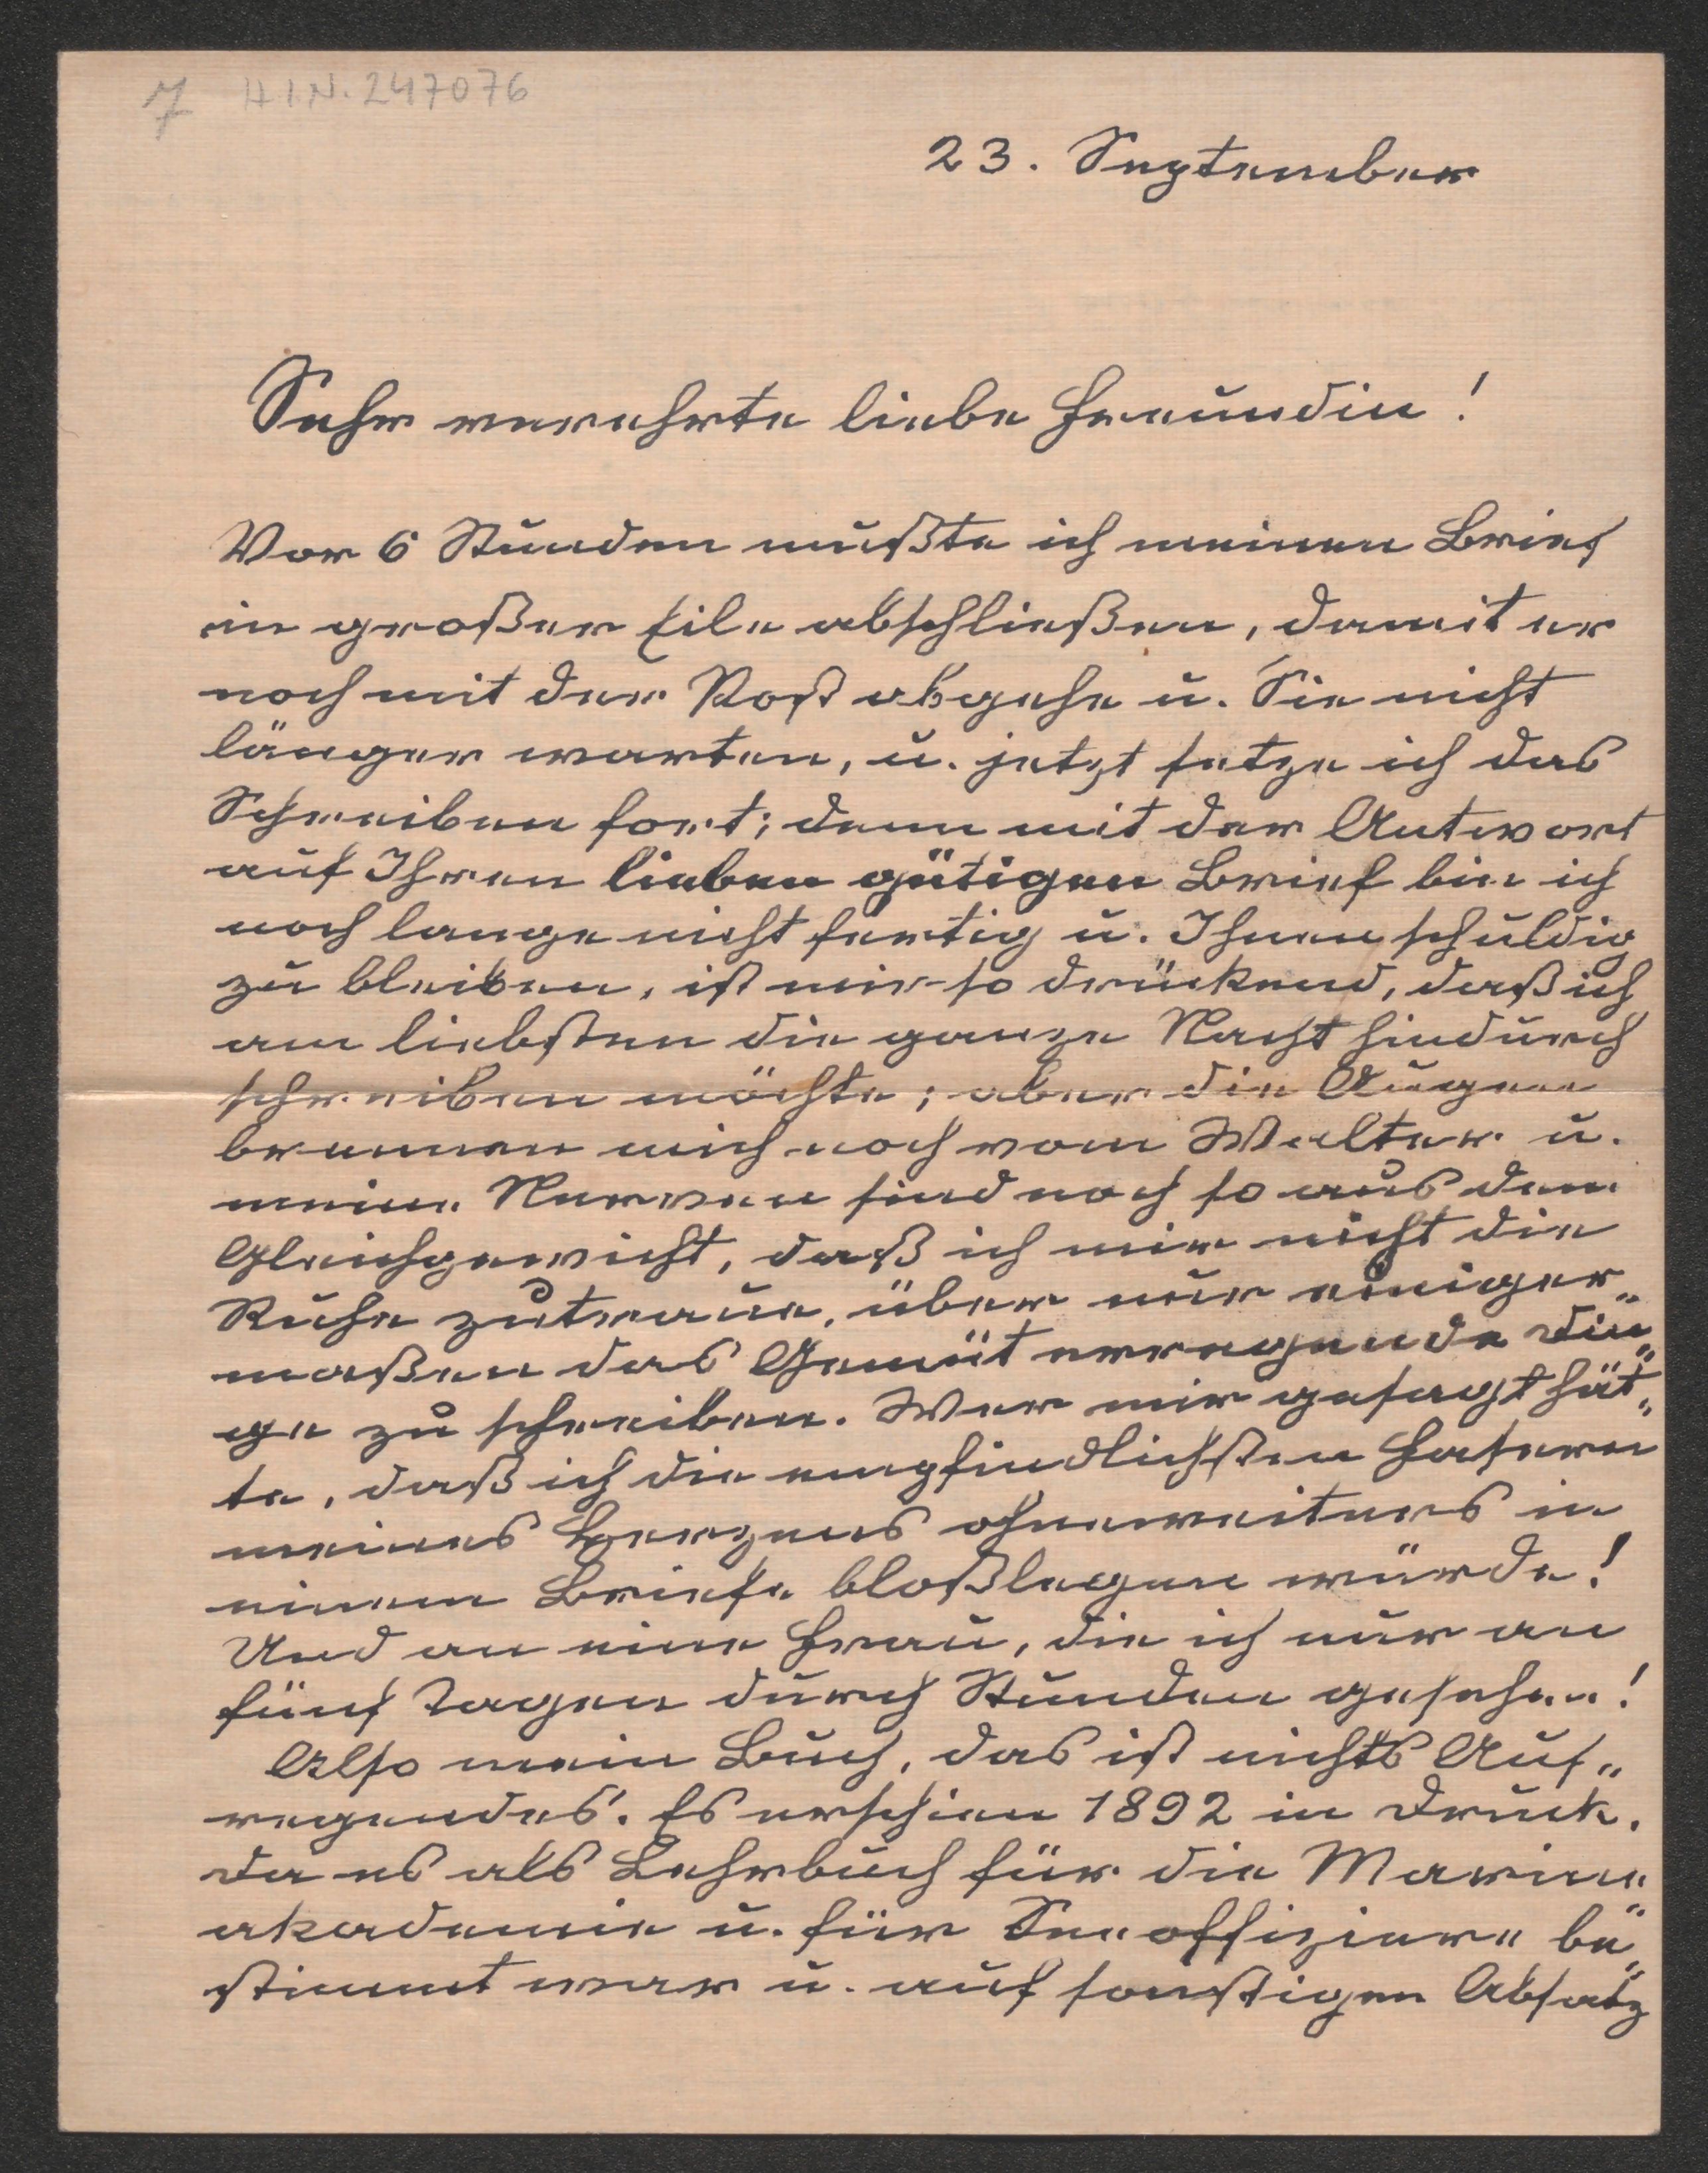 7 H.I.N. 247076
23. September
Sehr verehrte liebe Freundin!
Vor 6 Stunden mußte ich meinen Brief
in großer Eile abschließen, damit er
noch mit der Post abgehe u. Sie nicht
länger warten, u. jetzt setze ich das
Schreiben fort; denn mit der Antwort
auf Ihren lieben gütigen Brief bin ich
noch lange nicht fertig u. Ihnen schuldig
zu bleiben, ist mir so drückend, daß ich
am liebsten die ganze Nacht hindurch
schreiben möchte; aber die Augen
brennen mich noch vom Walter u.
meine Nerven sind noch so aus dem
Gleichgewicht, daß ich mir nicht die
Ruhe zutraue, über nur einiger„
maßen das Gemüt erregende Din„
ge zu schreiben. Wer mir gesagt hät„
te, daß ich die empfindlichsten Fasern
meines Herzens ohneweiters in
einem Briefe bloßlegen würde!
Und an eine Frau, die ich nur an
fünf Tagen durch Stunden gesehen!
Also mein Buch, das ist nichts Auf„
regendes. Es erschien 1892 in Druck.
Da es als Lehrbuch für die Marine
akademie u. für Seeoffiziere be„
stimmt war u. auf sonstigen Absatz